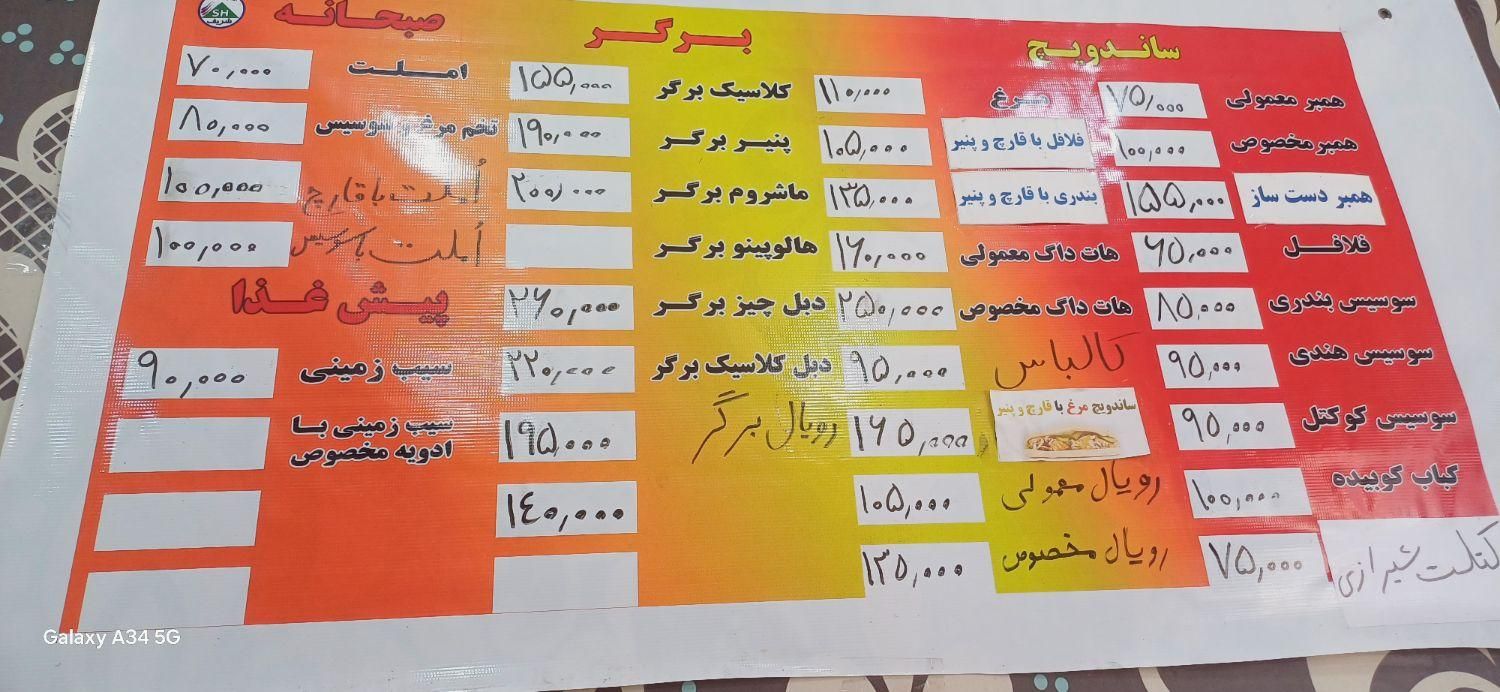 ساندویچ
همبر معمولی ۷۵,۰۰۰
همبر مخصوص ۱۰۰,۰۰۰
همبر دست ساز ۱۵۵,۰۰۰
فلافل ۶۵,۰۰۰
سوسیس بندری ۸۵,۰۰۰
سوسیس هندی ۹۵,۰۰۰
سوسیس کوکتل ۹۵,۰۰۰
کباب کوبیده ۱۰۰,۰۰۰
کتلت شیرازی ۷۵,۰۰۰
مرغ ۱۱۰,۰۰۰
فلافل با قارچ و پنیر ۱۰۵,۰۰۰
بندری با قارچ و پنیر ۱۳۵,۰۰۰
هات داگ معمولی ۱۶۰,۰۰۰
هات داگ مخصوص ۲۵۰,۰۰۰
کالباس ۹۵,۰۰۰
ساندویچ مرغ با قارچ و پنیر ۱۶۵,۰۰۰
رویال معمولی ۱۰۵,۰۰۰
رویال مخصوص ۱۳۵,۰۰۰
برگر
کلاسیک برگر ۱۵۵,۰۰۰
پنیر برگر ۱۹۰,۰۰۰
ماشروم برگر ۲۰۰,۰۰۰
هالوپینو برگر
دبل چیز برگر ۲۶۰,۰۰۰
دبل کلاسیک برگر ۲۲۰,۰۰۰
رویال برگر ۱۹۵,۰۰۰
۱۴۰,۰۰۰
صبحانه
املت ۷۰,۰۰۰
تخم مرغ و سوسیس ۸۰,۰۰۰
اُملت با قارچ ۱۰۰,۰۰۰
اُملت با سوسیس ۱۰۰,۰۰۰
پیش غذا
سیب زمینی ۹۰,۰۰۰
سیب زمینی با
ادویه مخصوص
SH
شریف
Galaxy A34 5G